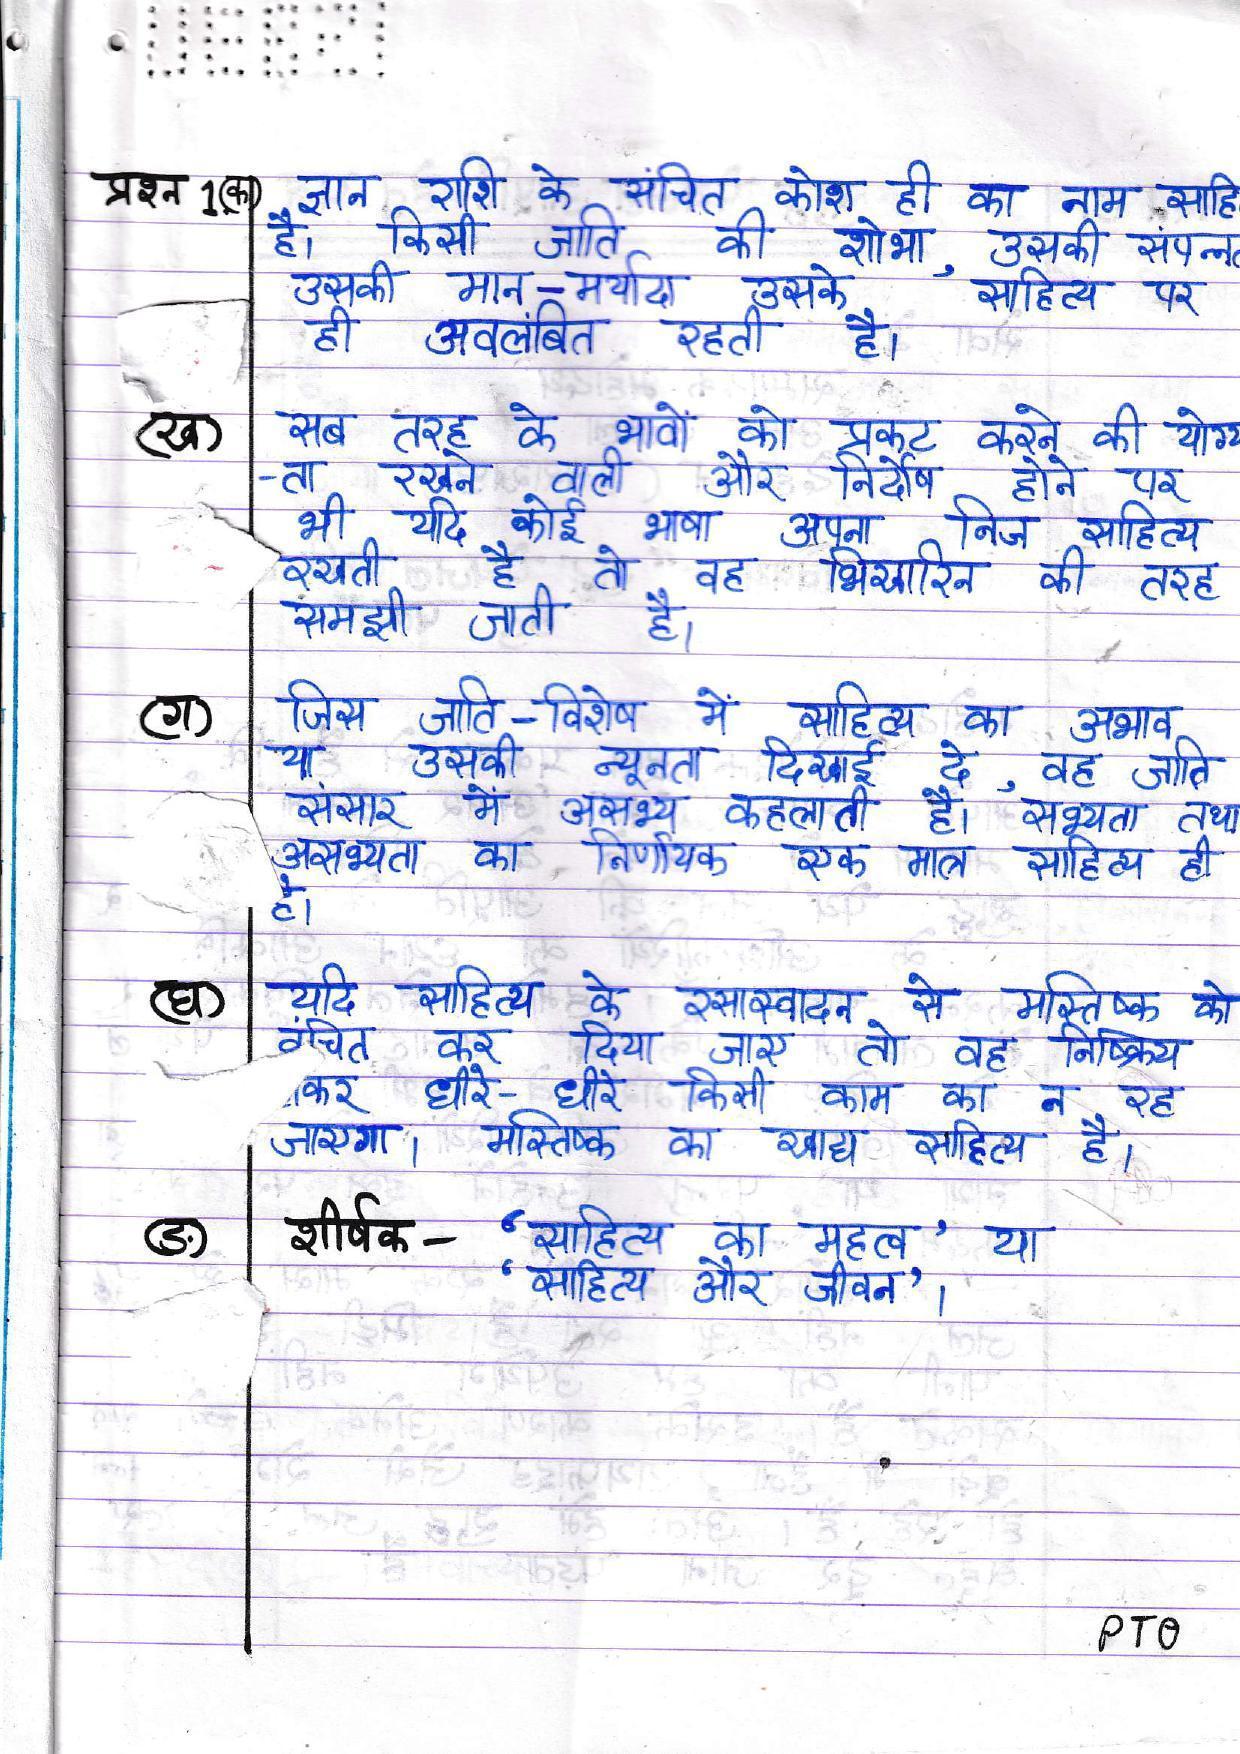 प्रश्न 1(क) ज्ञान राशि के संचित कोश ही का नाम साहि
है। किसी जाति की शोभा, उसकी संपन्नत
उसकी मान-मर्यादा उसके साहित्य पर
ही अवलंबित रहती है।
(ख) सब तरह के भावों को प्रकट करने की योग्य
-ता रखने वाली और निर्दोष होने पर
भी यदि कोई भाषा अपना निज साहित्य
रखती है तो वह भिखारिन की तरह
समझी जाती है।
(ग) जिस जाति-विशेष में साहित्य का अभाव
या उसकी न्यूनता दिखाई दे, वह जाति
संसार में असभ्य कहलाती है। सभ्यता तथा
असभ्यता का निर्णायक एक मात्र साहित्य ही
है।
(घ) यदि साहित्य के रसास्वादन से मस्तिष्क को
वंचित कर दिया जाए तो वह निष्क्रिय
कर धीरे-धीरे किसी काम का न रह
जाएगा। मस्तिष्क का खाद्य साहित्य है।
(ङ) शीर्षक- 'साहित्य का महत्व' या
'साहित्य और जीवन'।
PTO